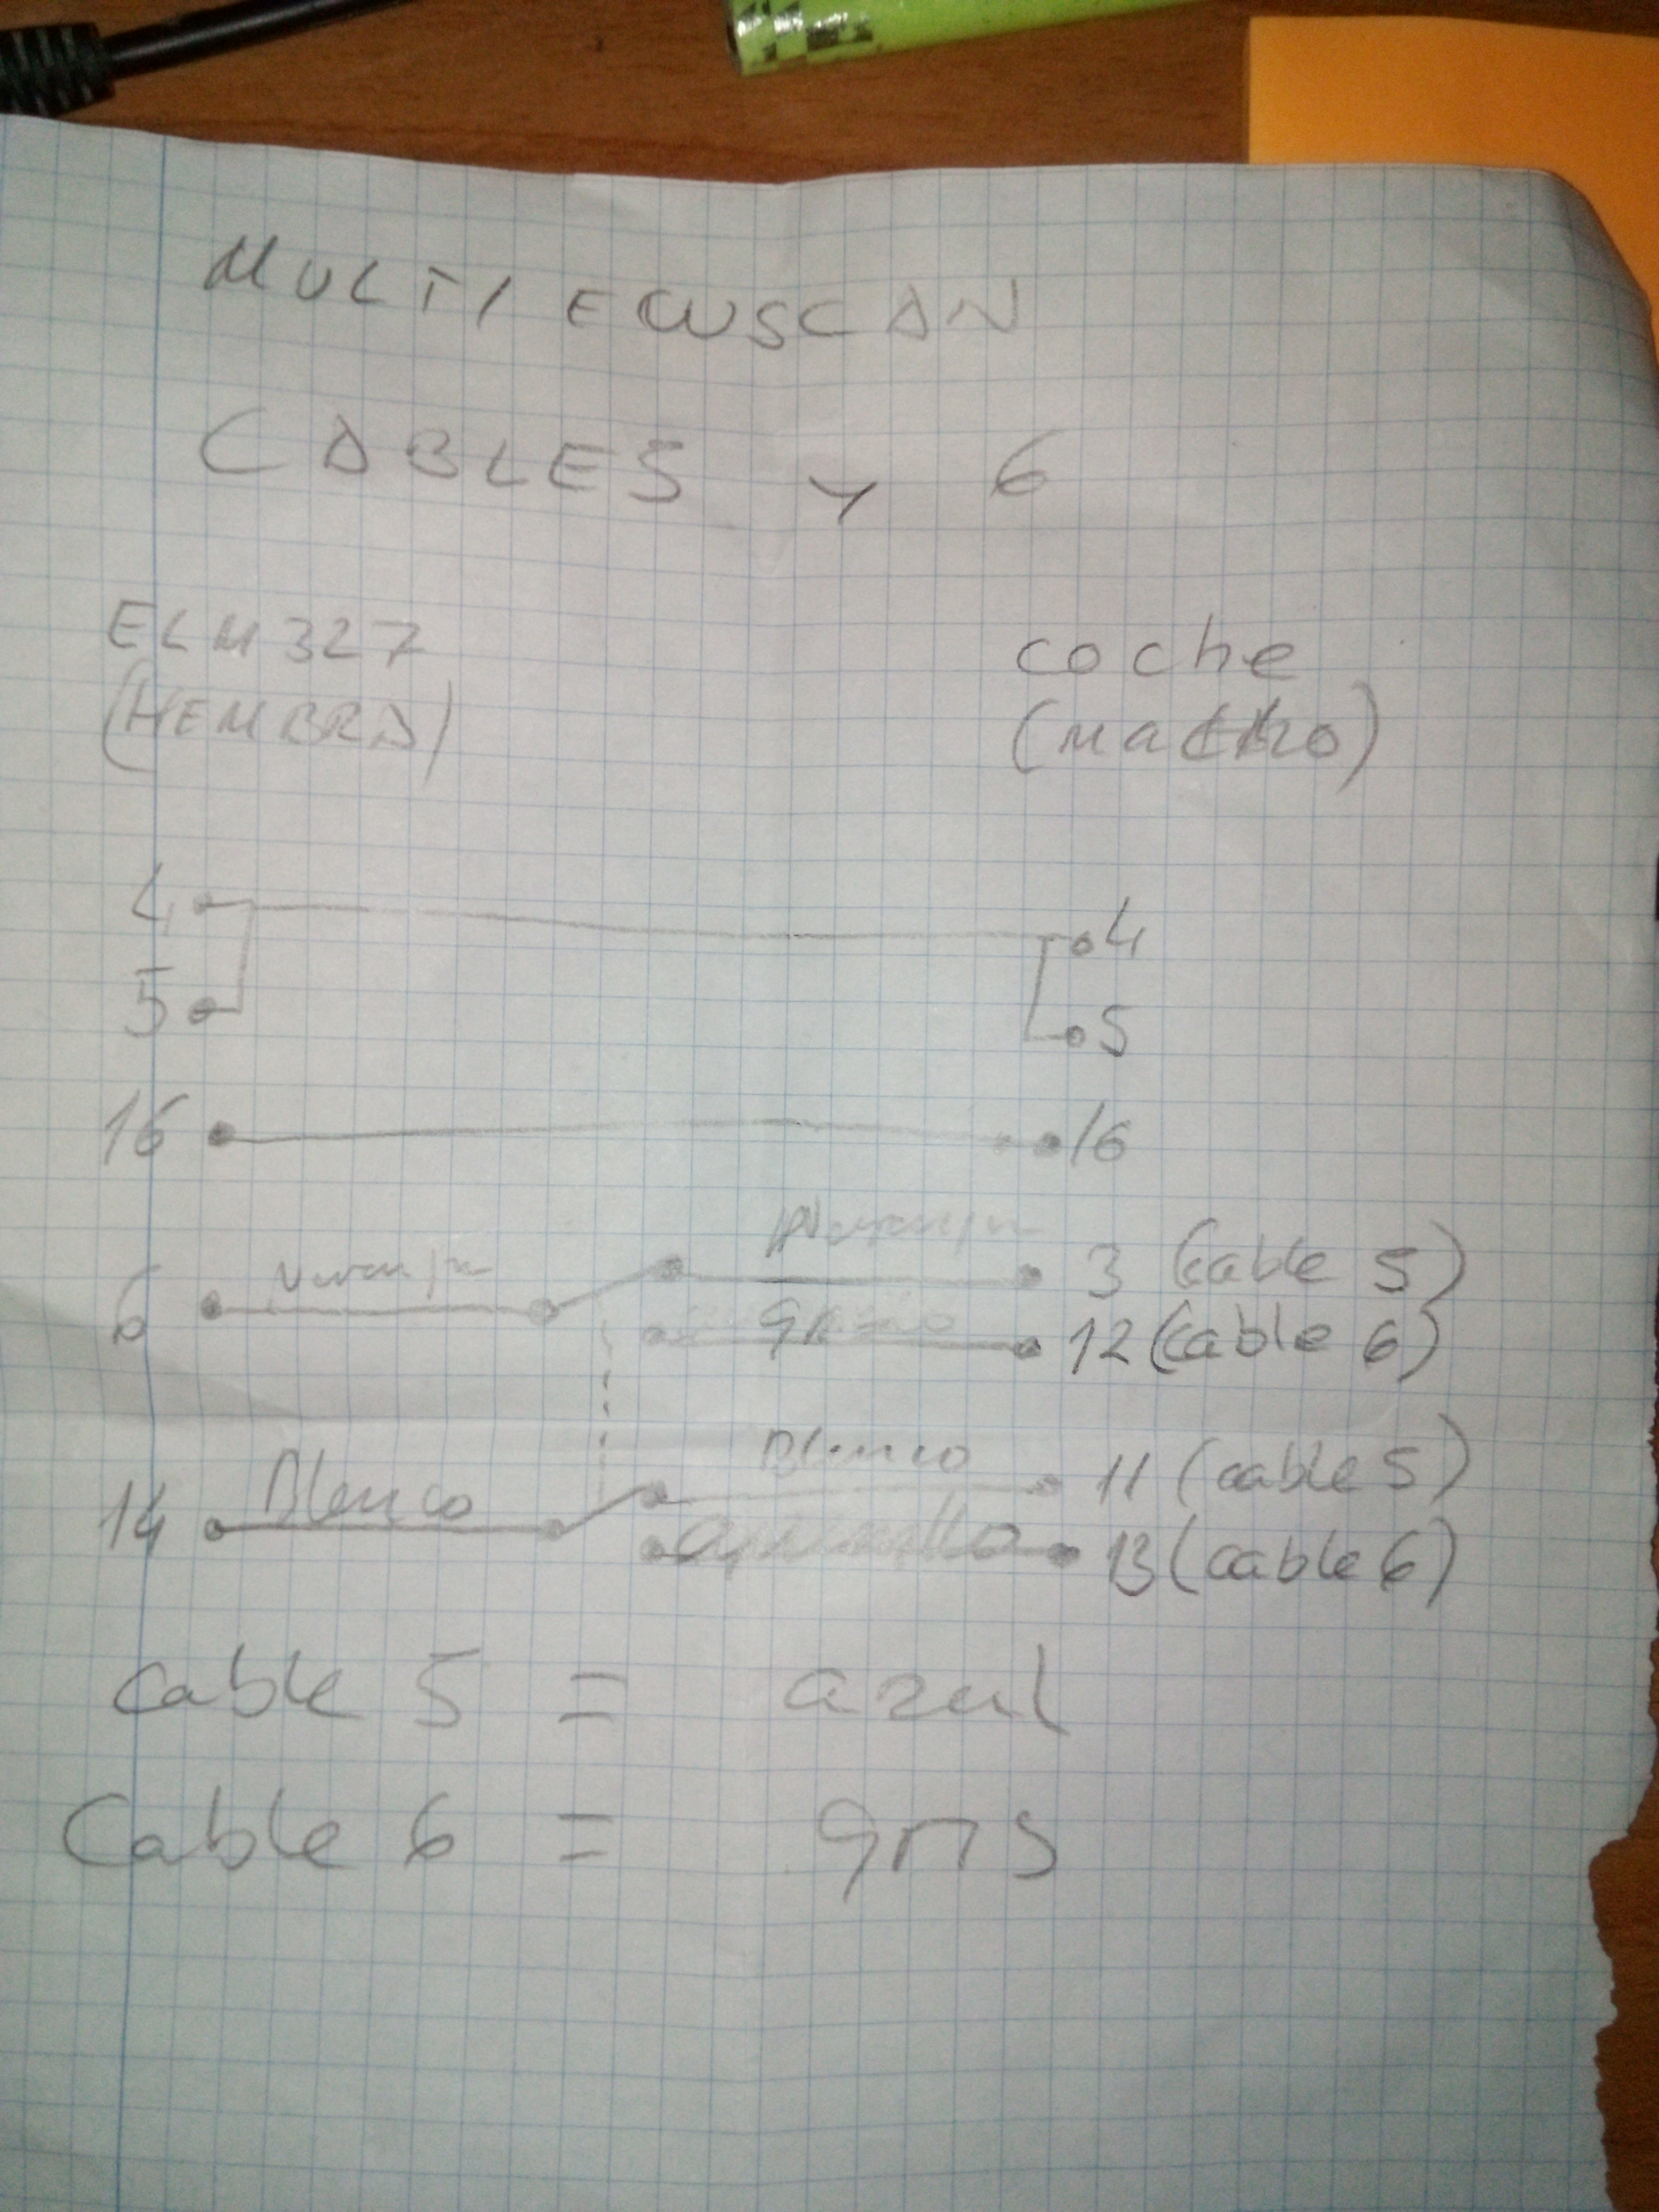 MULTIECUSCAN
CABLE 5 y 6
ELM327 coche
(HEMBRA) (macho)
4 4
5 5
16 16
naranja
6 naranja 3 (cable 5)
gris 12 (cable 6)
Blanco
14 Blanco 11 (cable 5)
amarillo 13 (cable 6)
cable 5 = azul
Cable 6 = gris